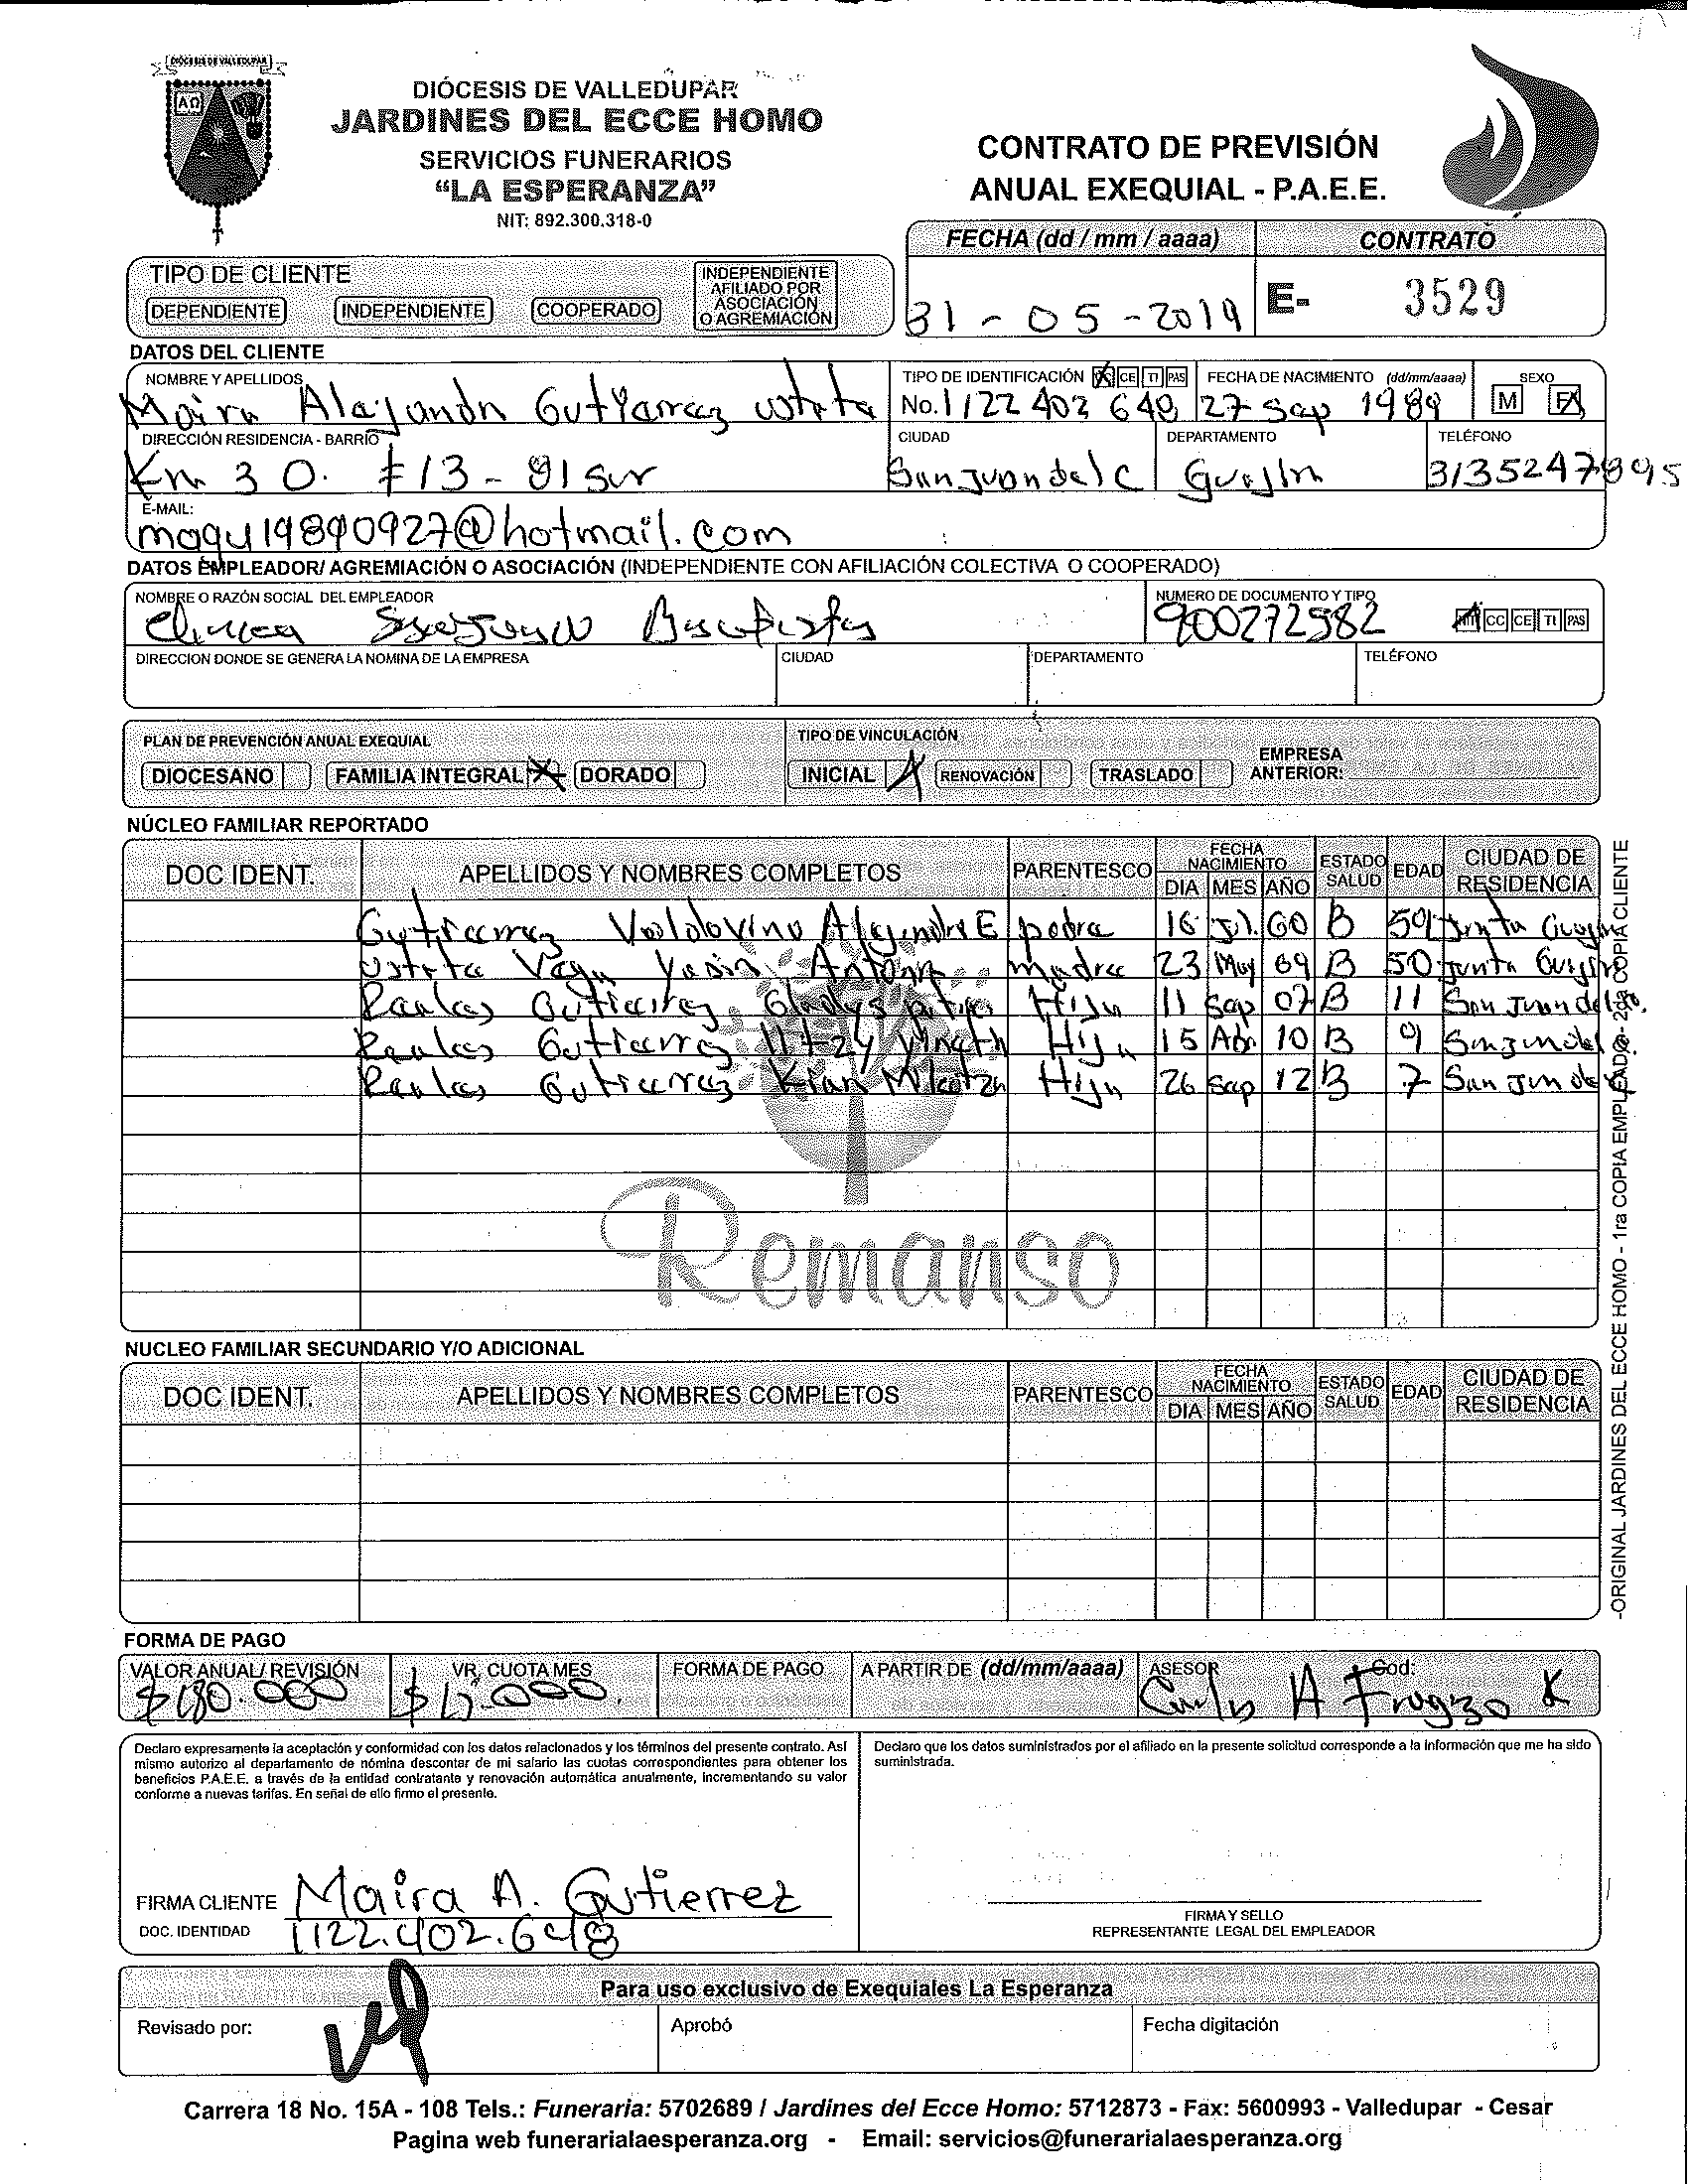 DIÓCESIS DE VALLEDUPAR
DIÓCESIS DE VALLEDUPAR
JARDINES DEL ECCE HOMO
SERVICIOS FUNERARIOS
“LA ESPERANZA”
NIT: 892.300.318-0
CONTRATO DE PREVISIÓN
ANUAL EXEQUIAL - P.A.E.E.
FECHA (dd / mm / aaaa) CONTRATO
31 - 05 - 2019 E- 3529
TIPO DE CLIENTE
DEPENDIENTE INDEPENDIENTE COOPERADO INDEPENDIENTE AFILIADO POR ASOCIACIÓN O AGREMIACIÓN
DATOS DEL CLIENTE
NOMBRE Y APELLIDOS TIPO DE IDENTIFICACIÓN CC CE TI PAS FECHA DE NACIMIENTO (dd/mm/aaaa) SEXO
Maira Alejandra Gutierrez No. 1122402648 27 Sep 1989 M F
DIRECCIÓN RESIDENCIA - BARRIO CIUDAD DEPARTAMENTO TELÉFONO
30. #13 - 81 Sur San Juan del C Guajira 3135247895
E-MAIL:
magu19890927@hotmail.com
DATOS EMPLEADOR/ AGREMIACIÓN O ASOCIACIÓN (INDEPENDIENTE CON AFILIACIÓN COLECTIVA O COOPERADO)
NOMBRE O RAZÓN SOCIAL DEL EMPLEADOR NUMERO DE DOCUMENTO Y TIPO
Clinica 900272582 NIT CC CE TI PAS
DIRECCION DONDE SE GENERA LA NOMINA DE LA EMPRESA CIUDAD DEPARTAMENTO TELÉFONO
PLAN DE PREVENCIÓN ANUAL EXEQUIAL TIPO DE VINCULACIÓN
DIOCESANO FAMILIA INTEGRAL X DORADO INICIAL X RENOVACIÓN TRASLADO EMPRESA ANTERIOR:
NÚCLEO FAMILIAR REPORTADO
DOC IDENT. APELLIDOS Y NOMBRES COMPLETOS PARENTESCO FECHA NACIMIENTO DIA MES AÑO ESTADO SALUD EDAD CIUDAD DE RESIDENCIA
Gutierrez Valdovino Alejandro E padre 16 Jul 60 B Junta Guajira
Vega Antonia madre 23 May 69 B 50 Junta Guajira
Gutierrez Gladys Hija 11 Sep 07 B 11 San Juan del
Gutierrez Hija 15 Abr 10 B 9
Gutierrez Kian Hijo 26 Sep 12 B 7 San Juan del
Remanso
NUCLEO FAMILIAR SECUNDARIO Y/O ADICIONAL
DOC IDENT. APELLIDOS Y NOMBRES COMPLETOS PARENTESCO FECHA NACIMIENTO DIA MES AÑO ESTADO SALUD EDAD CIUDAD DE RESIDENCIA
FORMA DE PAGO
VALOR ANUAL/ REVISIÓN VR. CUOTA MES FORMA DE PAGO A PARTIR DE (dd/mm/aaaa) ASESOR Cod:
$180.000 $15.000. Carlos A
Declaro expresamente la aceptación y conformidad con los datos relacionados y los términos del presente contrato. Así
mismo autorizo al departamento de nómina descontar de mi salario las cuotas correspondientes para obtener los
beneficios P.A.E.E. a través de la entidad contratante y renovación automática anualmente, incrementando su valor
conforme a nuevas tarifas. En señal de ello firmo el presente.
Declaro que los datos suministrados por el afiliado en la presente solicitud corresponde a la información que me ha sido
suministrada.
FIRMA CLIENTE Maira A. Gutierrez
DOC. IDENTIDAD 1122.402.648
FIRMA Y SELLO
REPRESENTANTE LEGAL DEL EMPLEADOR
Para uso exclusivo de Exequiales La Esperanza
Revisado por: Aprobó Fecha digitación
Carrera 18 No. 15A - 108 Tels.: Funeraria: 5702689 / Jardines del Ecce Homo: 5712873 - Fax: 5600993 - Valledupar - Cesar
Pagina web funerarialaesperanza.org - Email: servicios@funerarialaesperanza.org
-ORIGINAL JARDINES DEL ECCE HOMO - 1ra COPIA EMPLEADO - 2da COPIA CLIENTE